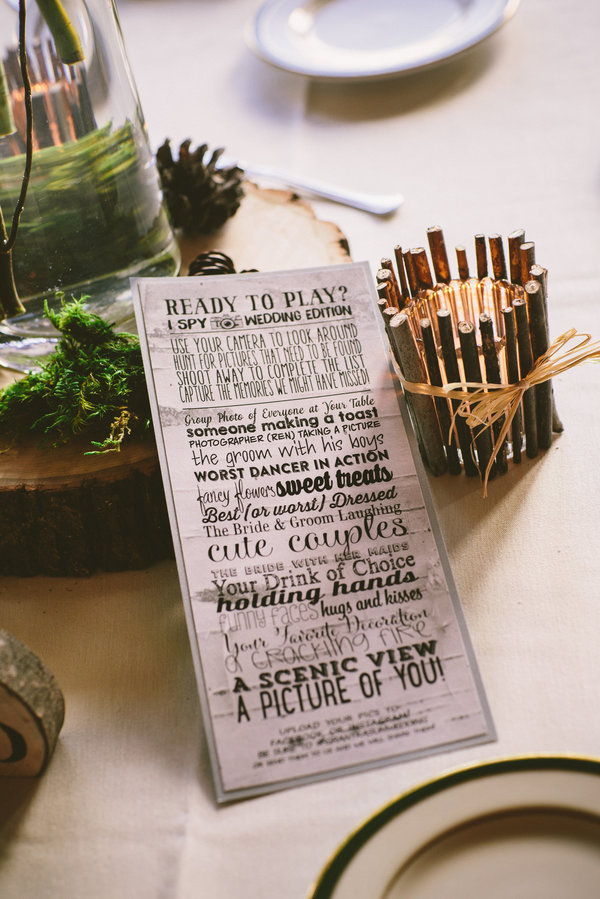 READY TO PLAY?
I SPY WEDDING EDITION
USE YOUR CAMERA TO LOOK AROUND
HUNT FOR PICTURES THAT NEED TO BE FOUND
SHOOT AWAY TO COMPLETE THE LIST
CAPTURE THE MEMORIES WE MIGHT HAVE MISSED
Group Photo of Everyone at Your Table
someone making a toast
PHOTOGRAPHER (REN) TAKING A PICTURE
the groom with his boys
WORST DANCER IN ACTION
fancy flowers sweet treats
Best (or worst) Dressed
The Bride & Groom Laughing
cute couples
THE BRIDE WITH HER MAIDS
Your Drink of Choice
holding hands
funny faces hugs and kisses
Your Favorite Decoration
a CRACKLING FIRE
A SCENIC VIEW
A PICTURE OF YOU!
UPLOAD YOUR PICS TO
FACEBOOK OR INSTAGRAM
BE SURE TO
OR SEND THEM TO US AND WE WILL SHARE THEM!